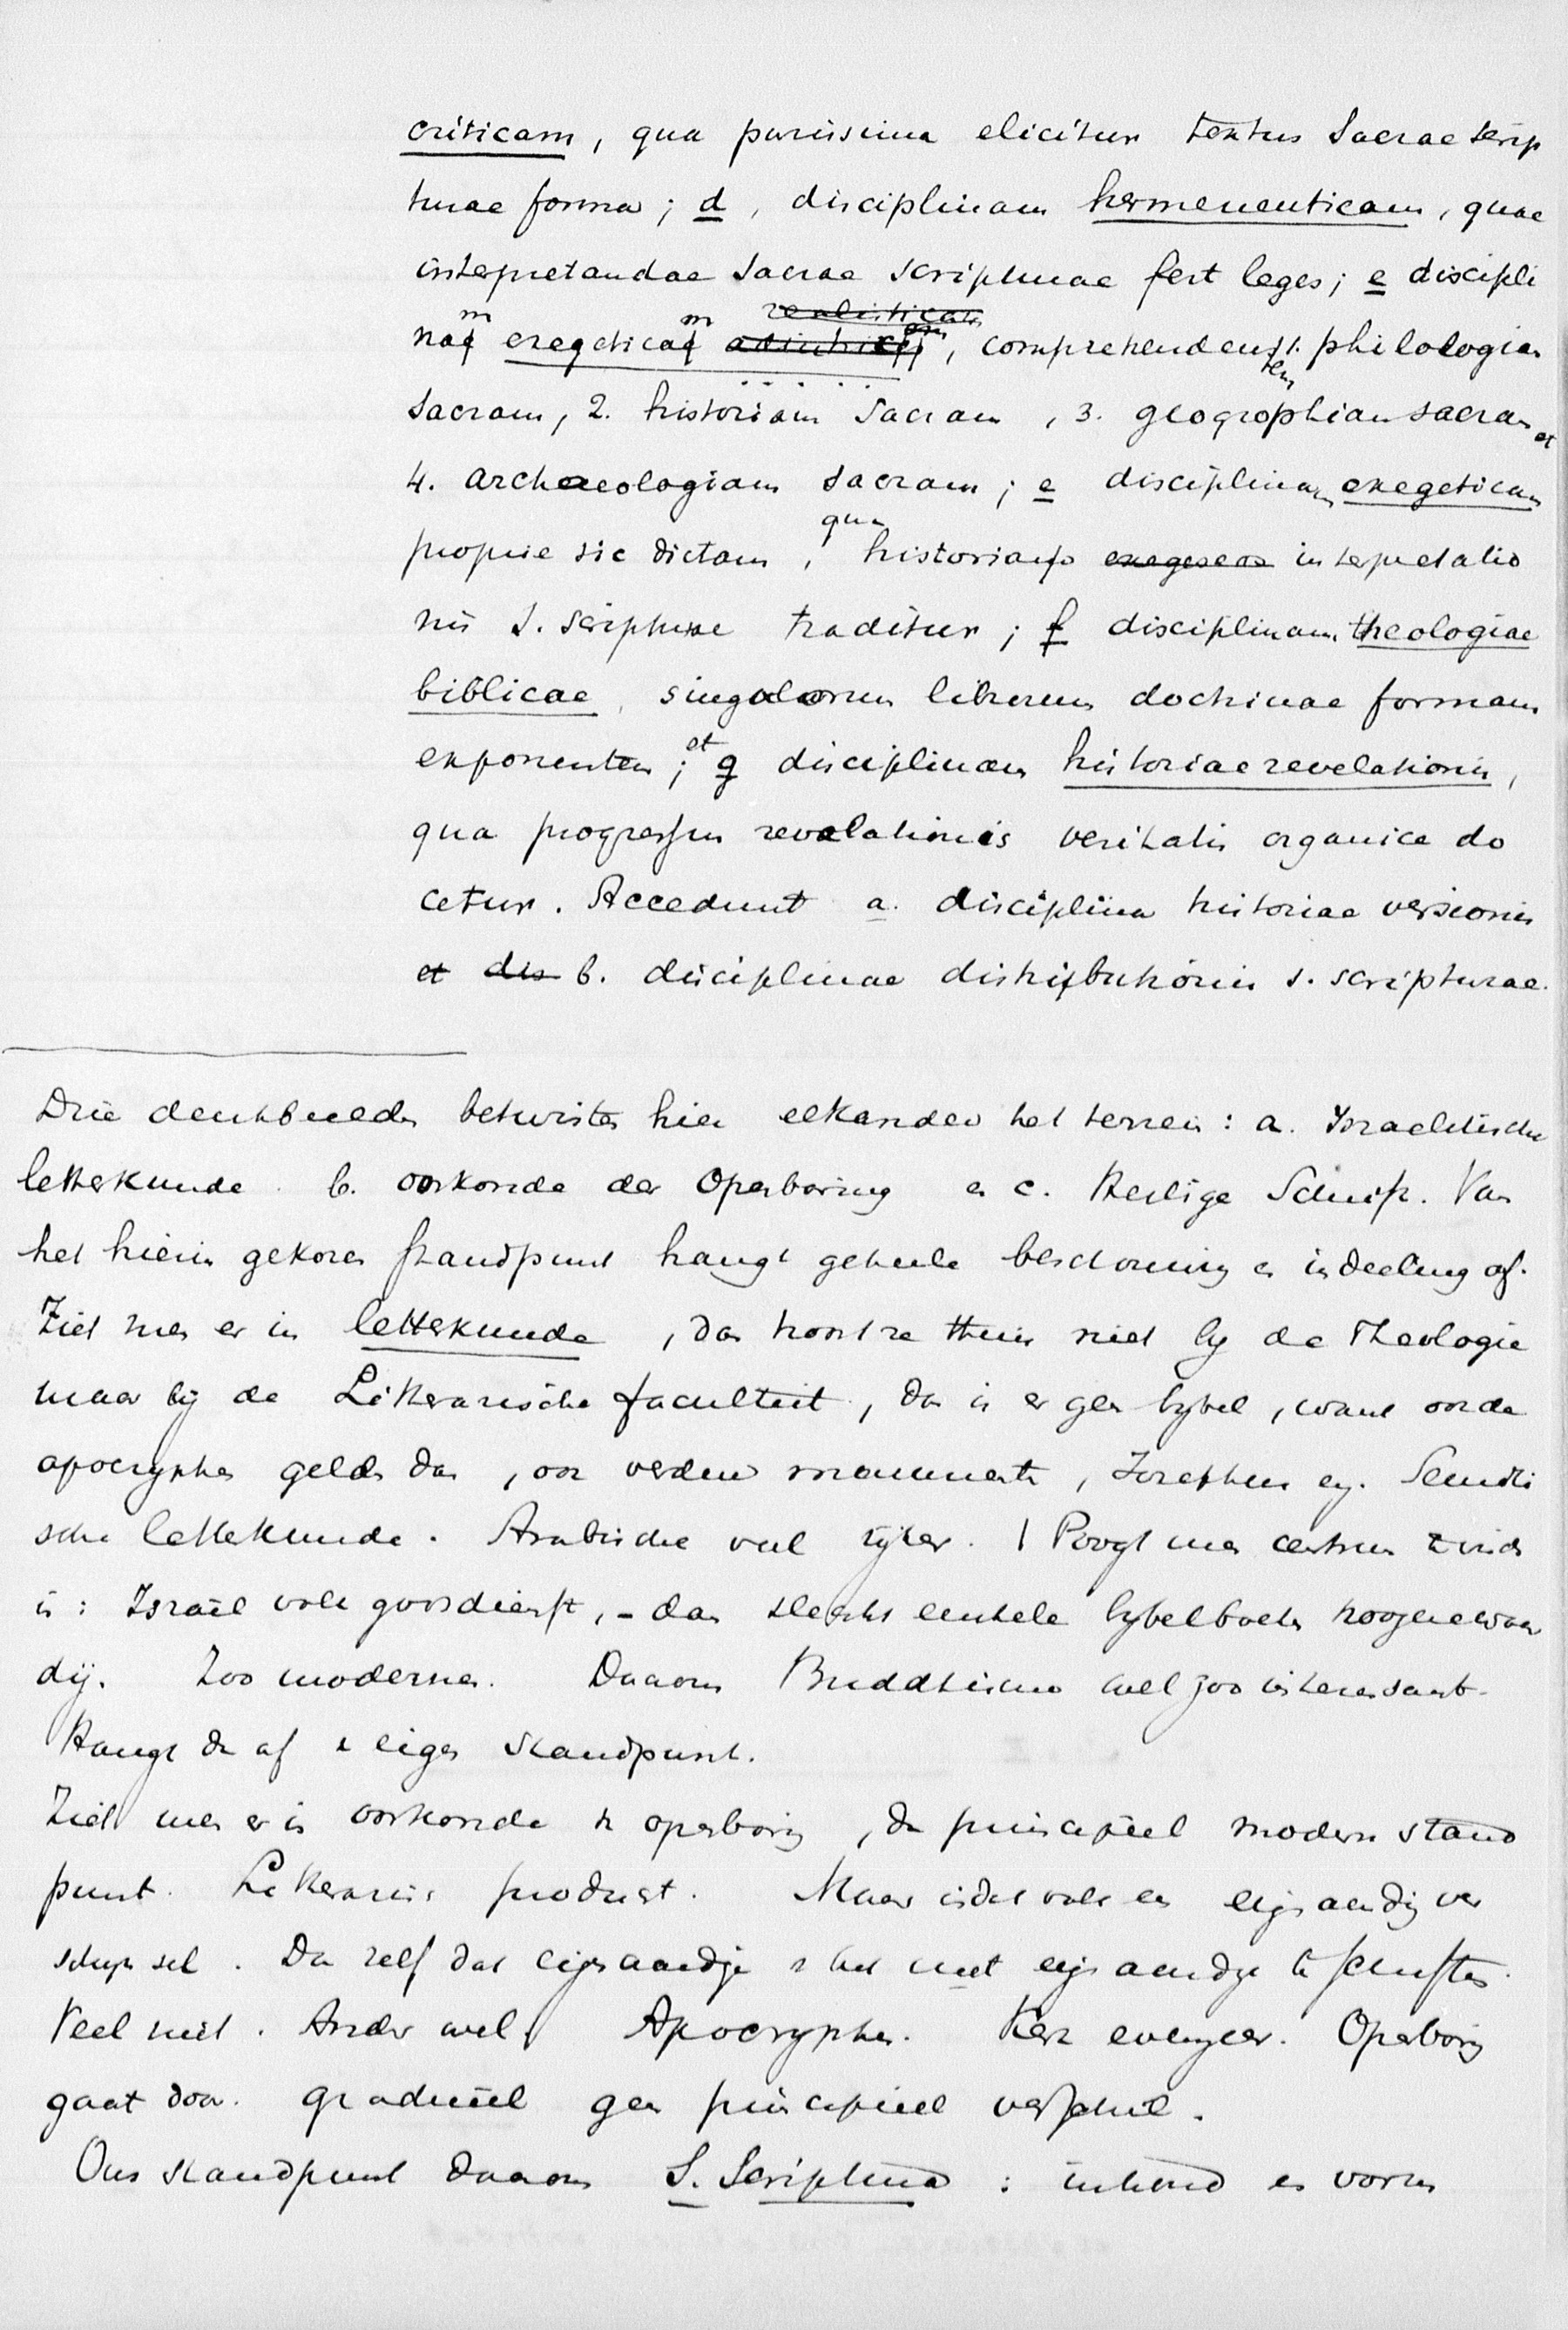 criticam, qua purissima elicitur textus Sacrae Scrip
turae forma; d, disciplinam hermeneuticam, quae
interpretandae Sacrae Scripturae fert leges; e discipli
nam exegeticam realisticam adiutricem, comprehendentem 1. philologiam
sacram, 2. historiam sacram, 3. geographiam sacram et
4. archaeologiam sacram; e disciplinam exegeticam
proprie sic dictam, qua historia exegeseos interpretatio
nis S. Scripturae traditur; f disciplinam theologiae
biblicae, singulorum librorum doctrinae formam
exponentem; et g disciplinam historiae revelationis,
qua progressus revelationis veritatis organice do
cetur. Accedunt a. disciplina historiae versionis
et dis b. disciplinae distributionis s. scripturae.
Drie denkbeelden betwisten hier elkander het terrein: a. Israelitische
letterkunde. b. oorkonde der Openbaring en c. Heilige Schrift. Van
het hierin gekozen standpunt hangt geheele beschouwing en indeeling af.
Ziet men er in letterkunde, dan hoort ze thuis niet bij de Theologie
maar bij de Litterarische faculteit, dan is er geen bybel, want ook de
apocryphen gelden dan, ook verdere monumenten, Josephus en z. Semiti
sche letterkunde. Arabische veel rijker. Poogt men centrum te vinden
in: Israel volk godsdienst, - dan slechts enkele bybelboeken
Zoo modernen. Daarom Buddhisme wel zoo interessant.
Hangt dan af v eigen standpunt.
Ziet men er in oorkonde der openbaring, dan principieel modern stand
punt. Litterarisch product. Maar in dat volk een eigenaardig ver
schijnsel. Dan zelf dat eigenaardige niet eigenaardige te schiften.
Veel niet. Ander wel. Apocryphen. Kerk evenzeer. Openbaring
gaat door. gradueel geen principieel verschil.
Ons standpunt daarom S. Scriptura: inhoud en vorm